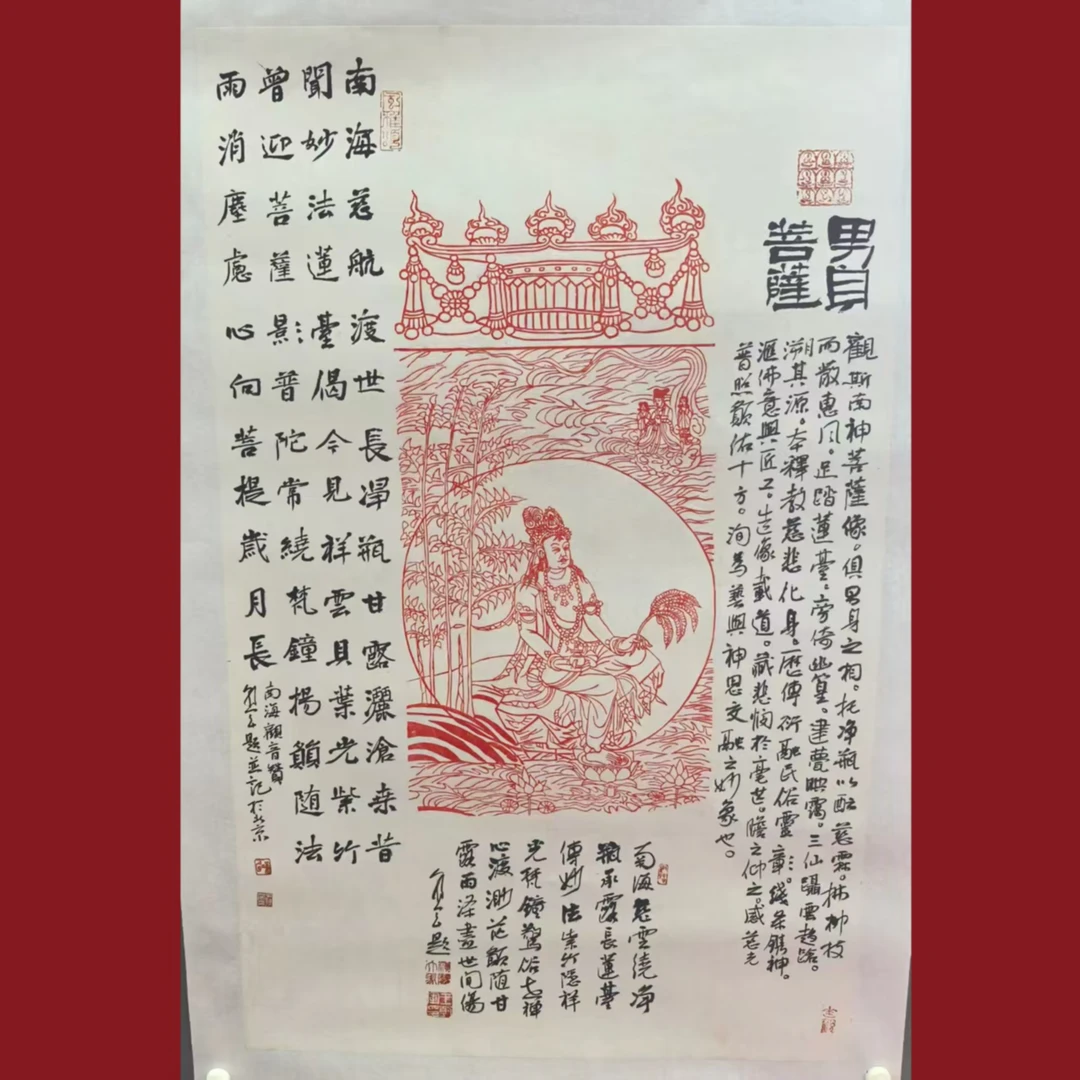 男身
菩薩
觀斯南神菩薩像。俱男身之相。托净瓶以酝慈霖。拂柳枝
而散惠风。足踏蓮臺。旁倚幽篁。映靄。三仙躡雲趋陪。
溯其源。本釋教慈悲化身。歷傳衍融民俗靈彰。綫条鐫神。
滙佛意與匠工。造像載道。藏悲憫於毫芒。瞻之仰之。感慈光
普照願佑十方。洵為藝與神思交融之妙象也。
南海慈雲繞净
瓶承露長蓮臺
傳妙法紫竹隐祥
光梵鐘驚俗世禪
心渡渺茫願随甘
露雨澤盡世间傷
題
南海慈航渡世長淨瓶甘露灑滄桑昔
聞妙法蓮臺偈今見祥雲貝葉光紫竹
曾迎菩薩影普陀常繞梵鐘揚願随法
雨消塵慮心向菩提歲月長
南海觀音贊
題並記於北京